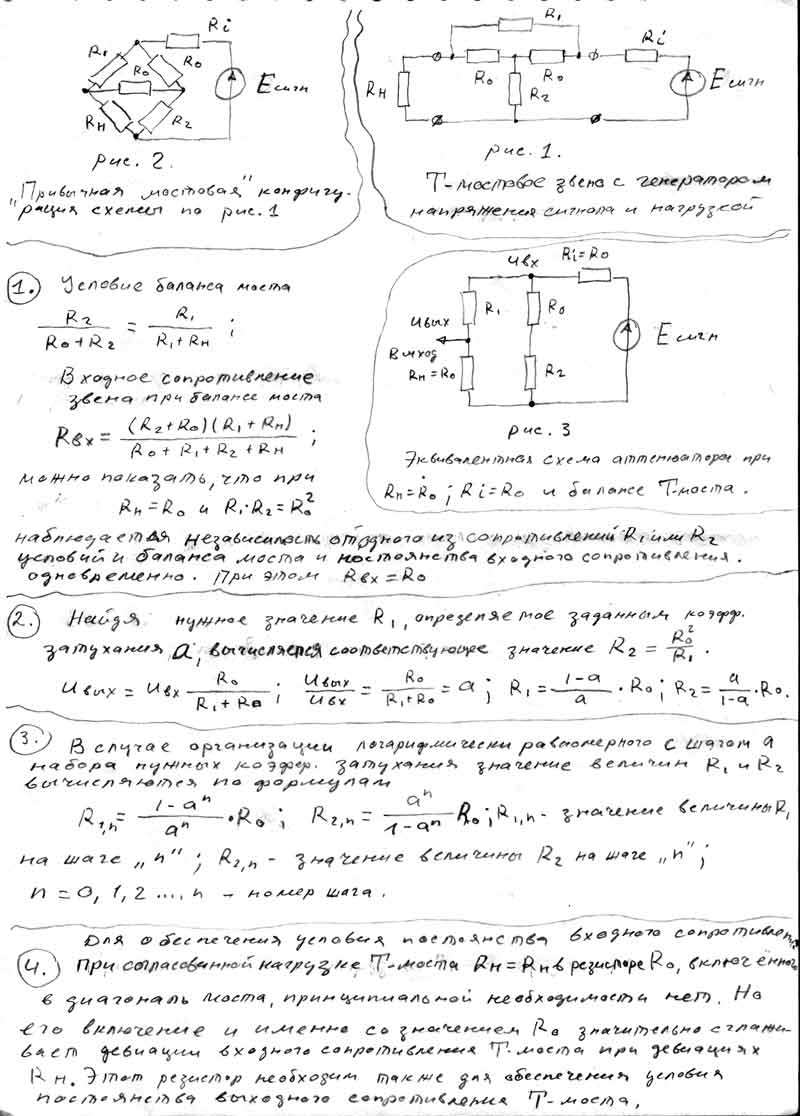 R1
Ri
R0
R0
Rн
R2
Eсигн
рис. 2.
„Привычная мостовая" конфигу-
рация схемы по рис. 1
R1
Ri
R0
R0
Rн
R2
Eсигн
рис. 1.
Т-мостовое звено с генератором
напряжения сигнала и нагрузкой
1. Условие баланса моста
R2/(R0+R2) = R1/(R1+Rн) ;
Входное сопротивление
звена при балансе моста
Rвх = (R2+R0)(R1+Rн)/(R0+R1+R2+Rн) ;
можно показать, что при
Rн = R0 и R1·R2 = R0²
Uвх
Ri=R0
R1
R0
Uвых
Выход
Rн=R0
R2
Eсигн
рис. 3
Эквивалентная схема аттенюатора при
Rн=R0 ; Ri=R0 и балансе Т-моста.
наблюдается независимость от одного из сопротивлений R1 или R2
условий и баланса моста и постоянства входного сопротивления.
одновременно. При этом Rвх=R0
2. Найдя нужное значение R1, определяемое заданным коэфф.
затухания a, вычисляется соответствующее значение R2 = R0²/R1.
Uвых = Uвх R0/(R1+R0) ; Uвых/Uвх = R0/(R1+R0) = a ; R1 = (1-a)/a · R0 ; R2 = a/(1-a) · R0.
3. В случае организации логарифмически равномерного с шагом a
набора нужных коэффр. затухания значение величин R1 и R2
вычисляются по формулам
R1,n = (1-aⁿ)/aⁿ · R0 ; R2,n = aⁿ/(1-aⁿ) R0 ; R1,n - значение величины R1
на шаге „n" ; R2,n - значение величины R2 на шаге „n" ;
n = 0, 1, 2 ...., n - номер шага.
Для обеспечения условия постоянства входного сопротивления
4. При согласованной нагрузке Т-моста Rн = Rн в резисторе R0, включённого
в диагональ моста, принципиальной необходимости нет. Но
его включение и именно со значением R0 значительно сглажи-
вает девиации входного сопротивления Т-моста при девиациях
Rн. Этот резистор необходим также для обеспечения условия
постоянства выходного сопротивления Т-моста.